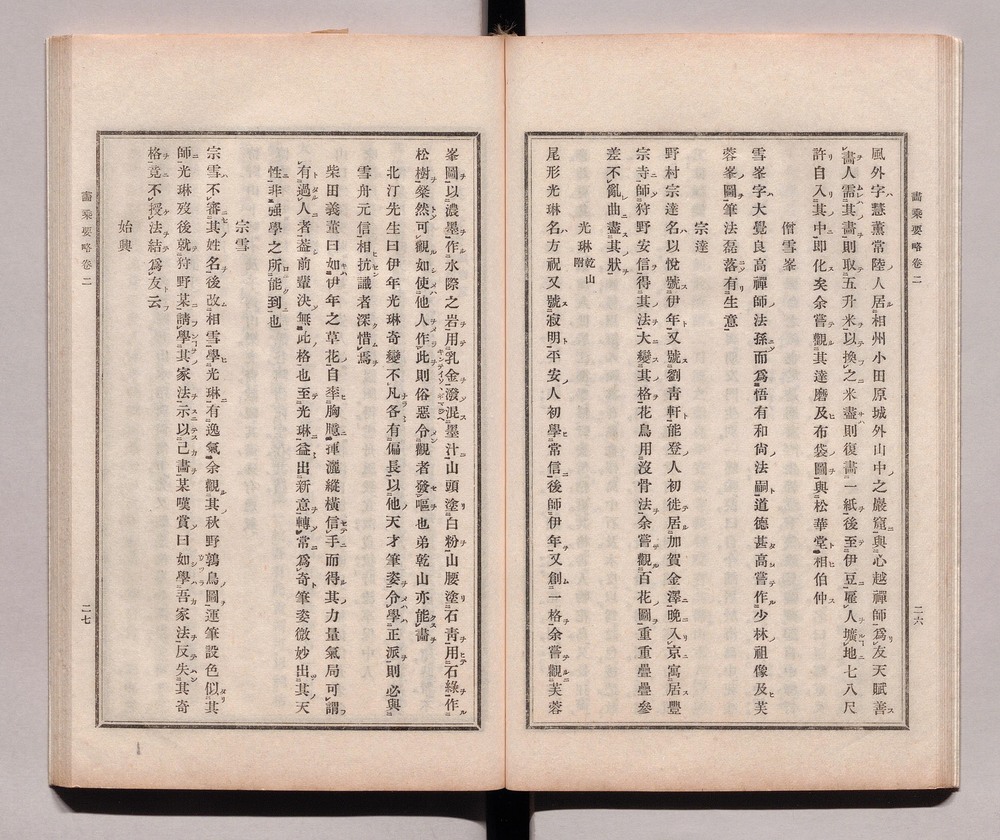 畵乘要略卷二
二六
風外字慧薰常陸人居相州小田原城外山中之巖窟與心越禪師爲友天賦善
畵人需其畵則取五升米以換之米盡則復畵一紙後至伊豆雇人壙地七八尺
許自入其中即化矣余嘗觀其達磨及布袋圖與松華堂相伯仲
僧雪峯
雪峯字大覺良高禪師法孫而爲悟有和尙法嗣道德甚高嘗作少林祖像及芙
蓉峯圖筆法磊落有生意
宗達
野村宗達名以悅號伊年又號劉靑軒能登人初徙居加賀金澤晚入京寓居豐
宗寺師狩野安信得其法大變其格花鳥用沒骨法余嘗觀百花圖重重疊疊參
差不亂曲盡其狀
光琳 附乾山
尾形光琳名方祝又號寂明平安人初學常信後師伊年又創一格余嘗觀芙蓉
峯圖以濃墨作水際之岩用乳金潑混墨汁山頭塗白粉山腰塗石靑用石綠作
松樹粲然可觀如使他人作此則俗惡令觀者發嘔也弟乾山亦能畵
北汀先生曰伊年光琳奇變不凡各有偏長以他天才筆姿分學正派則必與
雪舟元信相抗識者深惜焉
柴田義董曰如伊年之草花自率胸臆揮灑縱橫信手而得其力量氣局可謂
有過人者葢前輩決無此格也至光琳益出新意轉常爲奇筆姿微妙出其天
性非强學之所能到也
宗雪
宗雪不審其姓名後改相雪學光琳有逸氣余觀其秋野鶉鳥圖運筆設色似其
師光琳歿後就狩野某請學其家法示以己畵某嘆賞曰如學吾家法反失其奇
格竟不授法結爲友云
始興
畵乘要略卷二
二七